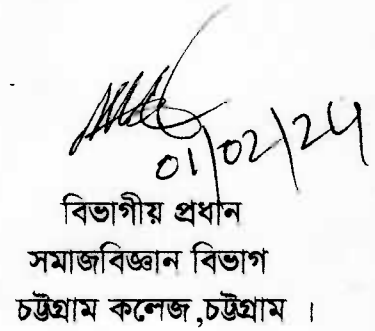 01/02/24
বিভাগীয় প্রধান
সমাজবিজ্ঞান বিভাগ
চট্টগ্রাম কলেজ,চট্টগ্রাম ।